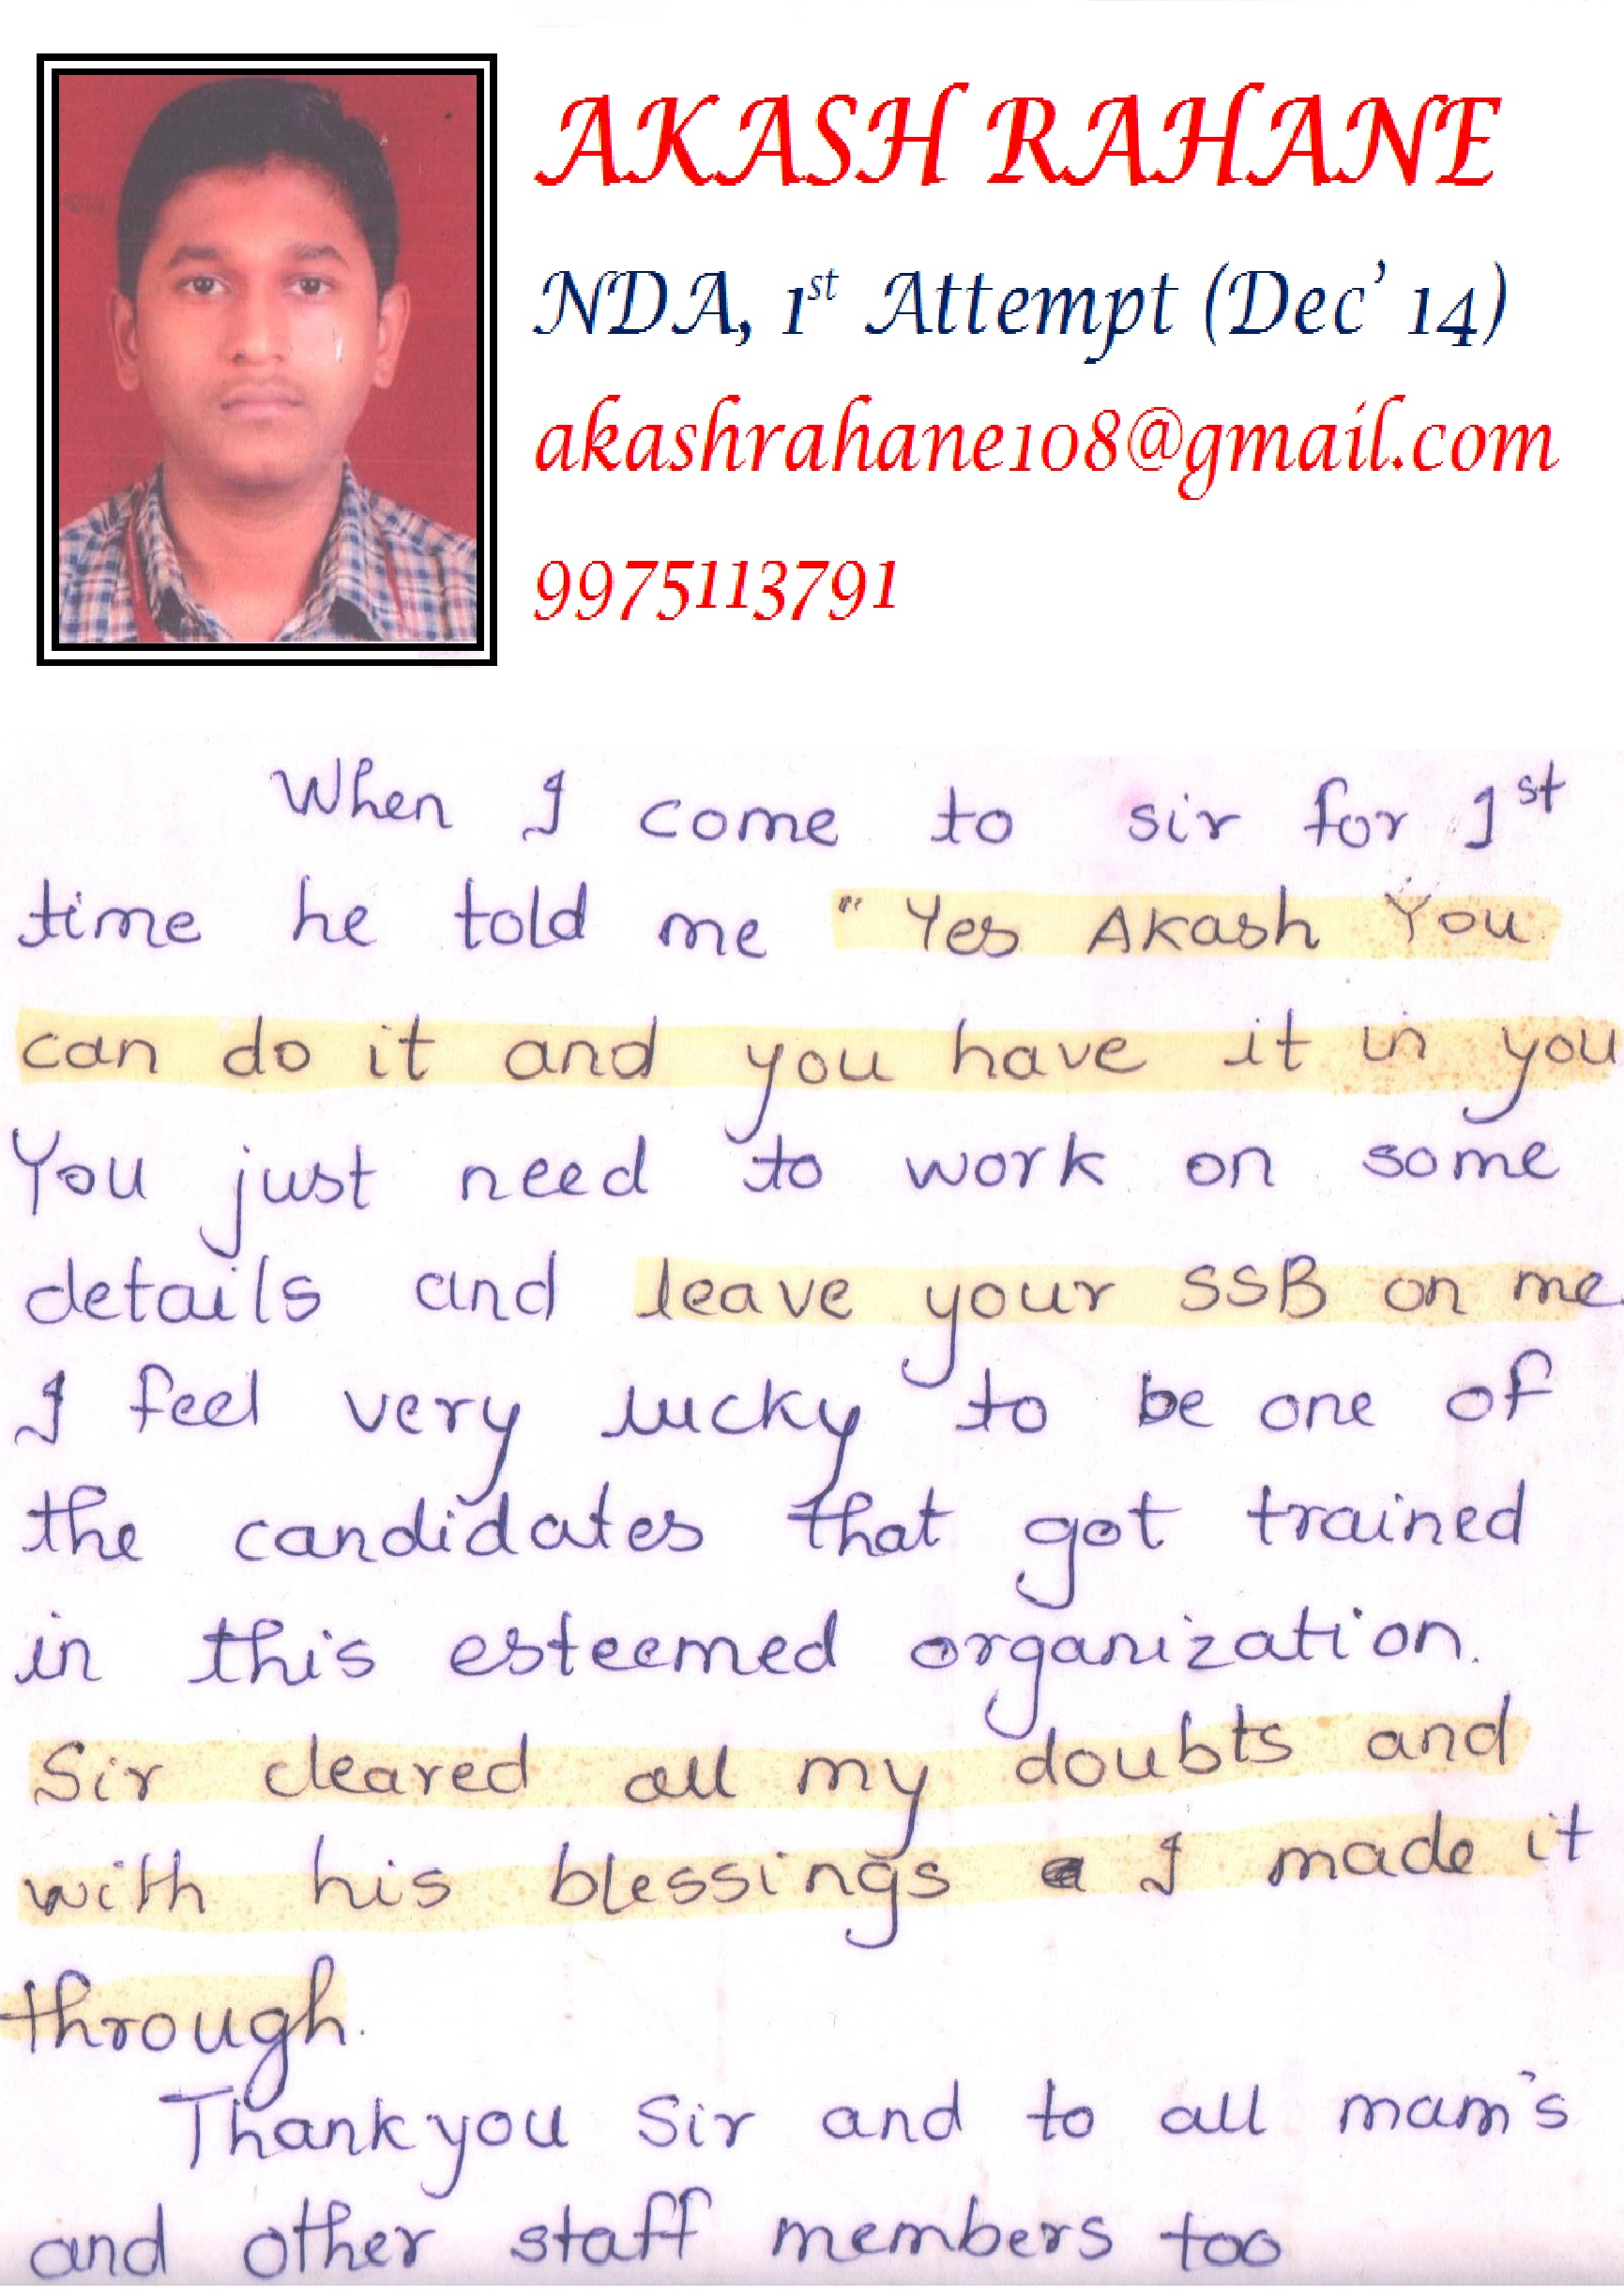 AKASH RAHANE
NDA, 1st Attempt (Dec' 14)
akashrahane108@gmail.com
9975113791
When I come to sir for 1st
time he told me " Yes Akash You
can do it and you have it in you
You just need to work on some
details and leave your SSB on me.
I feel very lucky to be one of
the candidates that got trained
in this esteemed organization.
Sir cleared all my doubts and
with his blessings I made it
through.
Thank you Sir and to all mam's
and other staff members too